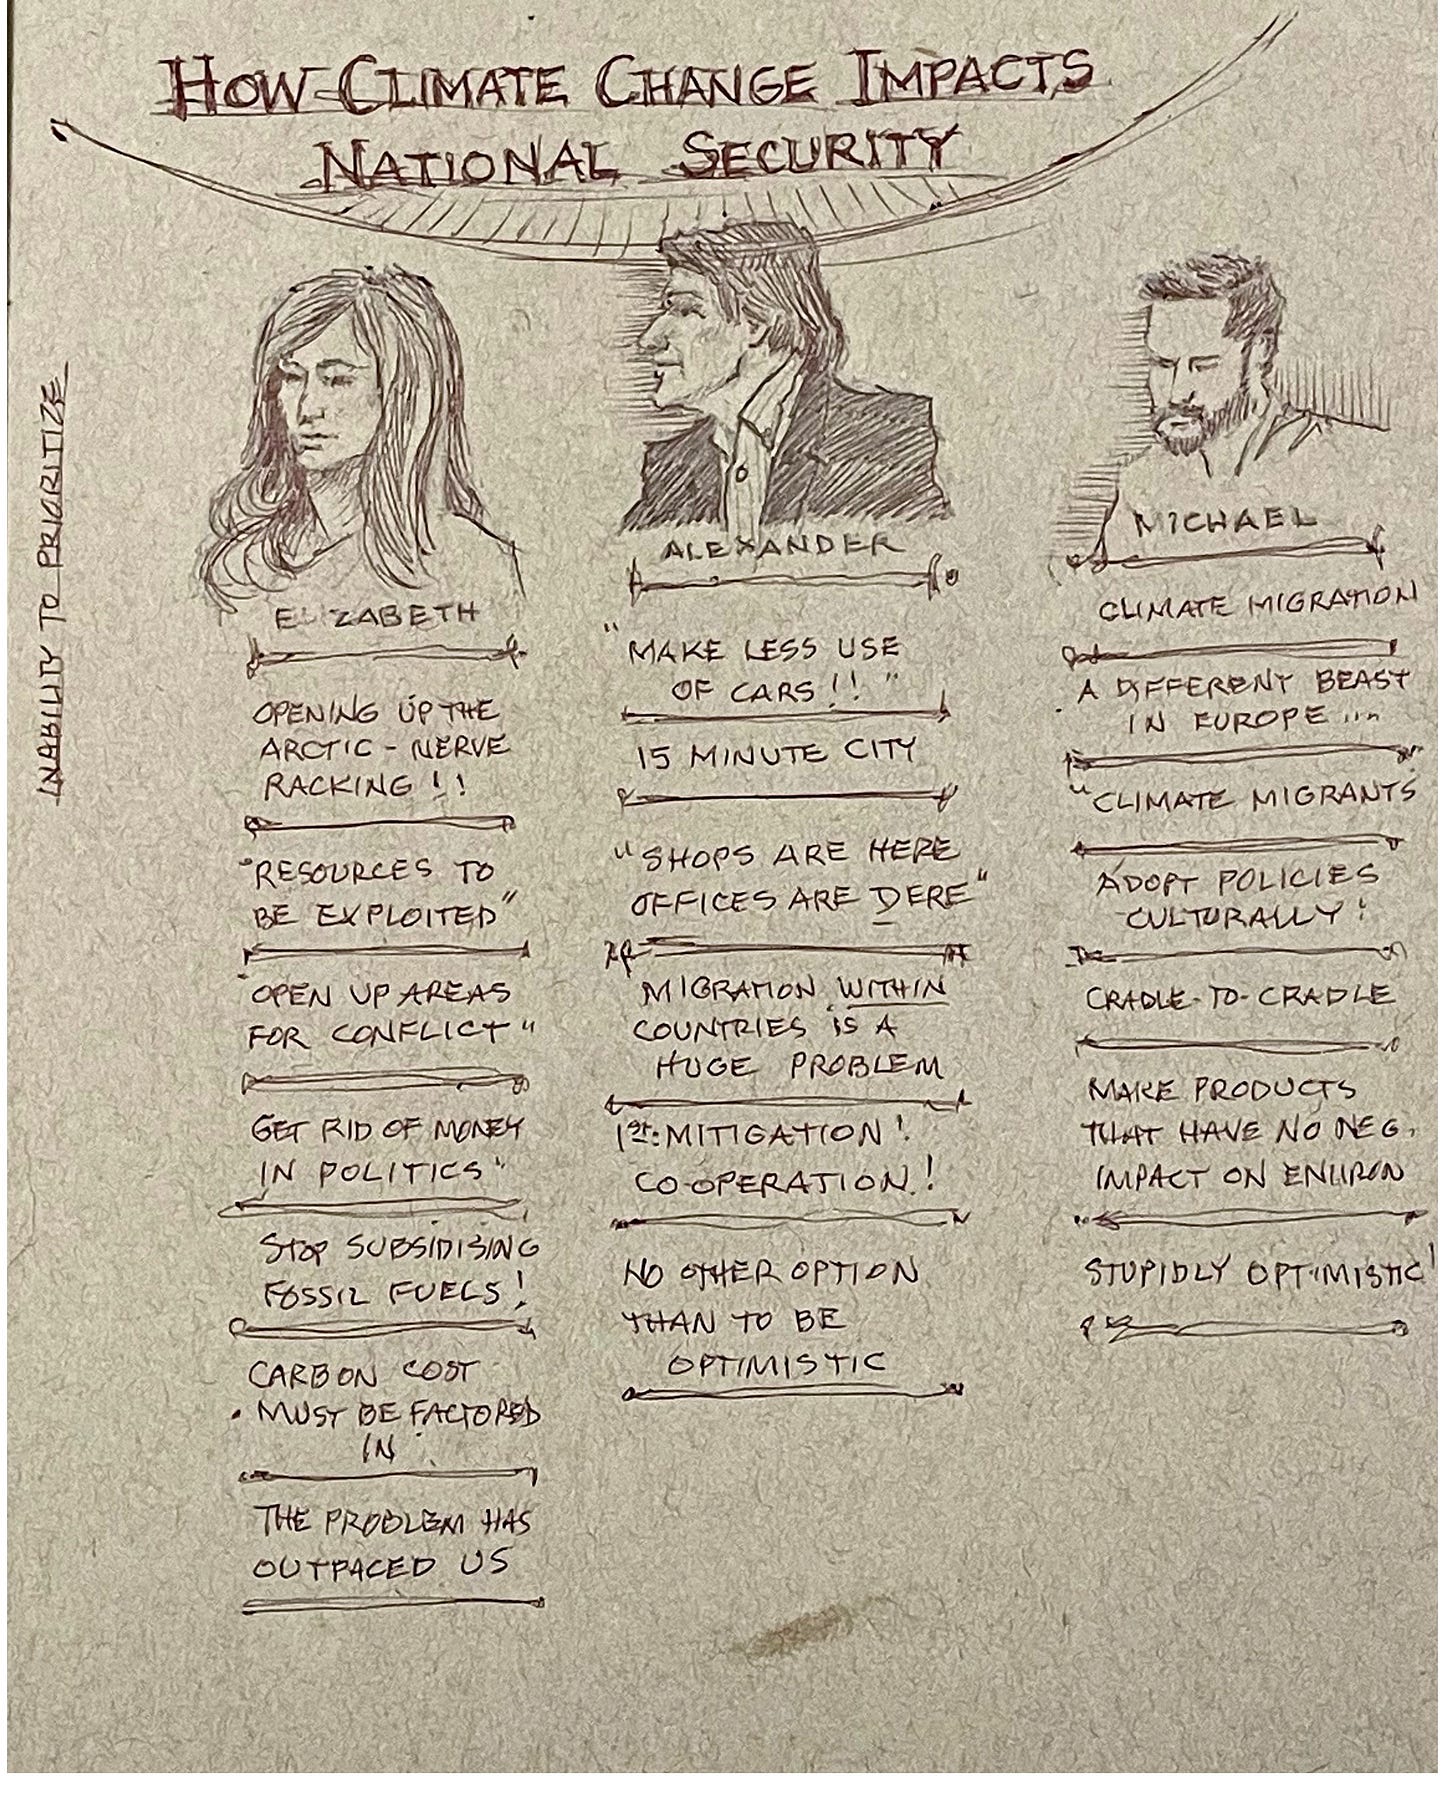 HOW CLIMATE CHANGE IMPACTS
NATIONAL SECURITY
INABILITY TO PRIORITIZE
ELIZABETH
OPENING UP THE
ARCTIC - NERVE
RACKING!!
"RESOURCES TO
BE EXPLOITED"
"OPEN UP AREAS
FOR CONFLICT"
GET RID OF MONEY
IN POLITICS"
STOP SUBSIDISING
FOSSIL FUELS!
CARBON COST
• MUST BE FACTORED
IN
THE PROBLEM HAS
OUTPACED US
ALEXANDER
"MAKE LESS USE
OF CARS!!"
15 MINUTE CITY
"SHOPS ARE HERE
OFFICES ARE DERE"
MIGRATION WITHIN
COUNTRIES IS A
HUGE PROBLEM
1st: MITIGATION!
CO-OPERATION!
NO OTHER OPTION
THAN TO BE
OPTIMISTIC
MICHAEL
CLIMATE MIGRATION
A DIFFERENT BEAST
IN EUROPE ....
"CLIMATE MIGRANTS
ADOPT POLICIES
CULTURALLY!
CRADLE-TO-CRADLE
MAKE PRODUCTS
THAT HAVE NO NEG.
IMPACT ON ENVIRON
STUPIDLY OPTIMISTIC!